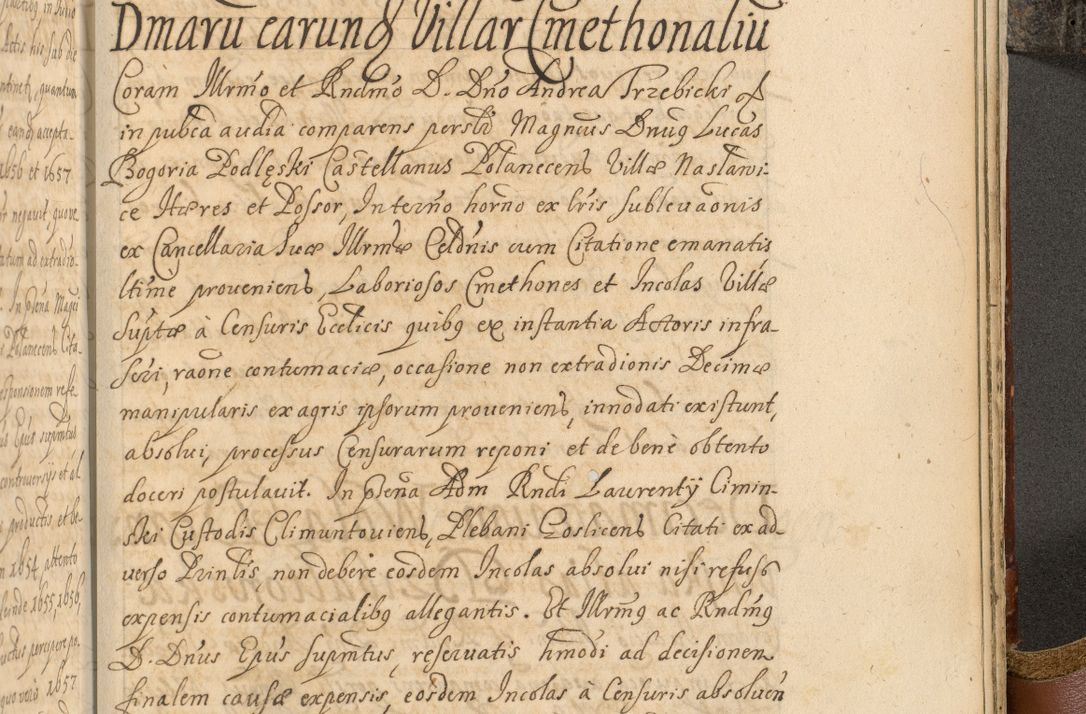 Dmaru earunq Villar Cmethonaliu
Coram Illrmo et Rndmo D. Dno Andrea Trzebicki
in pubca audia comparens persltr Magncus Dnus Lucas
Bogoria Podlęski Castellanus Polanecens Villæ Naslawi-
ce Hæres et Possor, In termo horno ex lris subleuaonis
ex Cancellaria Suæ Illrmæ Celdnis cum Citatione emanatis
ltime proueniens, Laboriosos Cmethones et Incolas Villæ
suptæ à Censuris Ecclicis quibq ex instantia Actoris infra-
scri, raone contumaciæ, occasione non extradionis Decimæ
manipularis ex agris ipsorum proueniens, innodati existunt,
absolui, processus Censurarum reponi et de benè obtento
doceri postulauit. In pñtia Adm Rndi Laurentij Cimin-
ski Custodis Climuntouiens, Plebani Goslicens Citati ex ad
verso Prinlis non debere eosdem Incolas absolui nisi refusis
expensis contumacialibq allegantis. Et Illrmq ac Rndmq
D. Dnus Epus supmtus, reseruatis hmodi ad decisionem
finalem causæ expensis, eosdem Incolas à Censuris absoluen
ntinet, quantum
eanq accepta-
1656 et 1657
negauit, quove
tum ad extradio-
In pñtia Magci
Polanecens Cita-
esponsionem refe
Epus supmtus
controuersijs et al
productis et be
1654, attento
deinde 1655, 1656,
uctus percipere po-
quo vero 1657